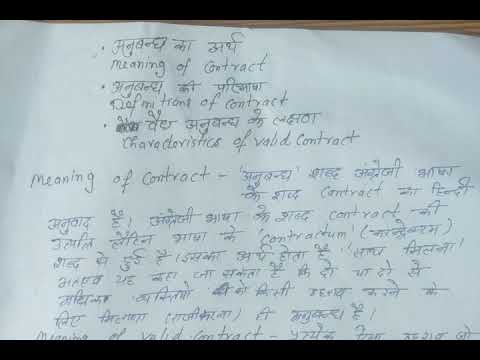 • अनुबन्ध का अर्थ
Meaning of Contract
• अनुबन्ध की परिभाषा
Definitions of Contract
• वैद्य अनुबन्ध के लक्षण
Characteristics of valid Contract
Meaning of Contract - 'अनुबन्ध' शब्द अंग्रेजी भाषा
के शब्द Contract का हिन्दी
अनुवाद है। अंग्रेजी भाषा के शब्द contract की
उत्पत्ति लैटिन भाषा के 'Contractum' (कान्ट्रेक्टम)
शब्द से हुई है। इसका अर्थ होता है 'साथ मिलना'
यह कहा जा सकता है कि दो या दो से
अधिक व्यक्तियों को किसी करने के
लिए मिलाना ही अनुबन्ध है।
Meaning of Valid Contract - प्रत्येक ऐसा ठहराव जो